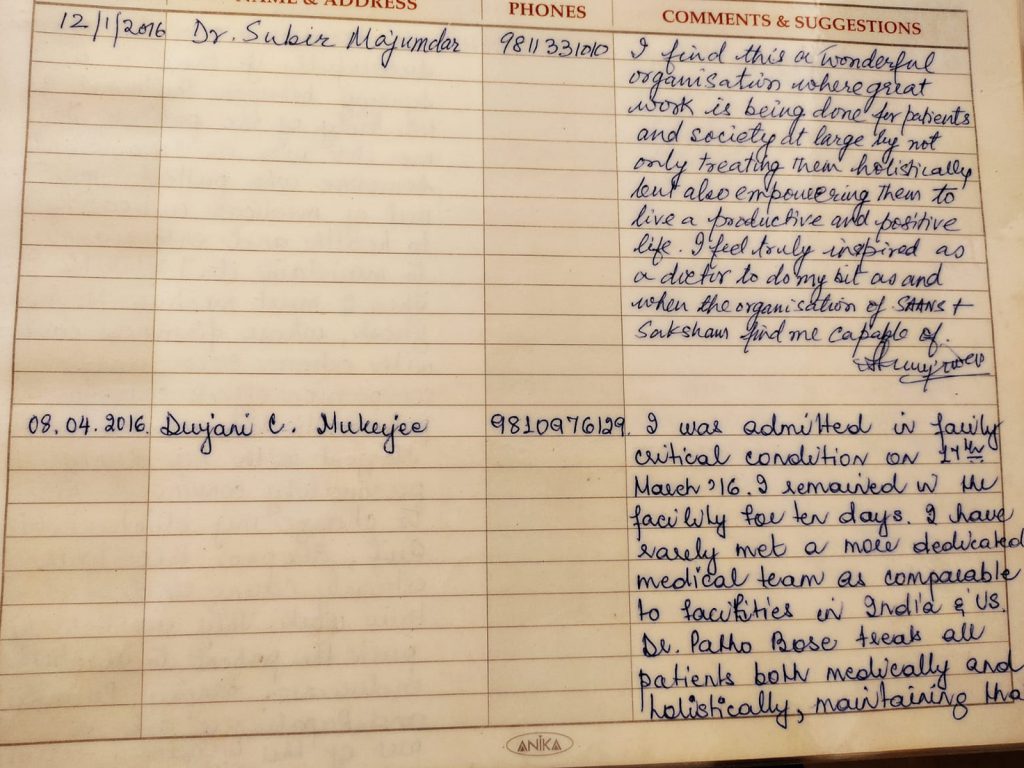 NAME & ADDRESS
PHONES
COMMENTS & SUGGESTIONS
12/1/2016 Dr. Subir Majumdar 9811331010
I find this a wonderful
organisation where great
work is being done for patients
and society at large by not
only treating them holistically
but also empowering them to
live a productive and positive
life. I feel truly inspired as
a doctor to do my bit as and
when the organisation of SAANS +
Saksham find me capable of.
08.04.2016. C. Mukerjee 9810976129
I was admitted in fairly
critical condition on 17th
March '16. I remained in the
facility for ten days. I have
rarely met a more dedicated
medical team as comparable
to facilities in India & US.
Dr. Partho Bose treats all
patients both medically and
holistically, maintaining tha
ANIKA